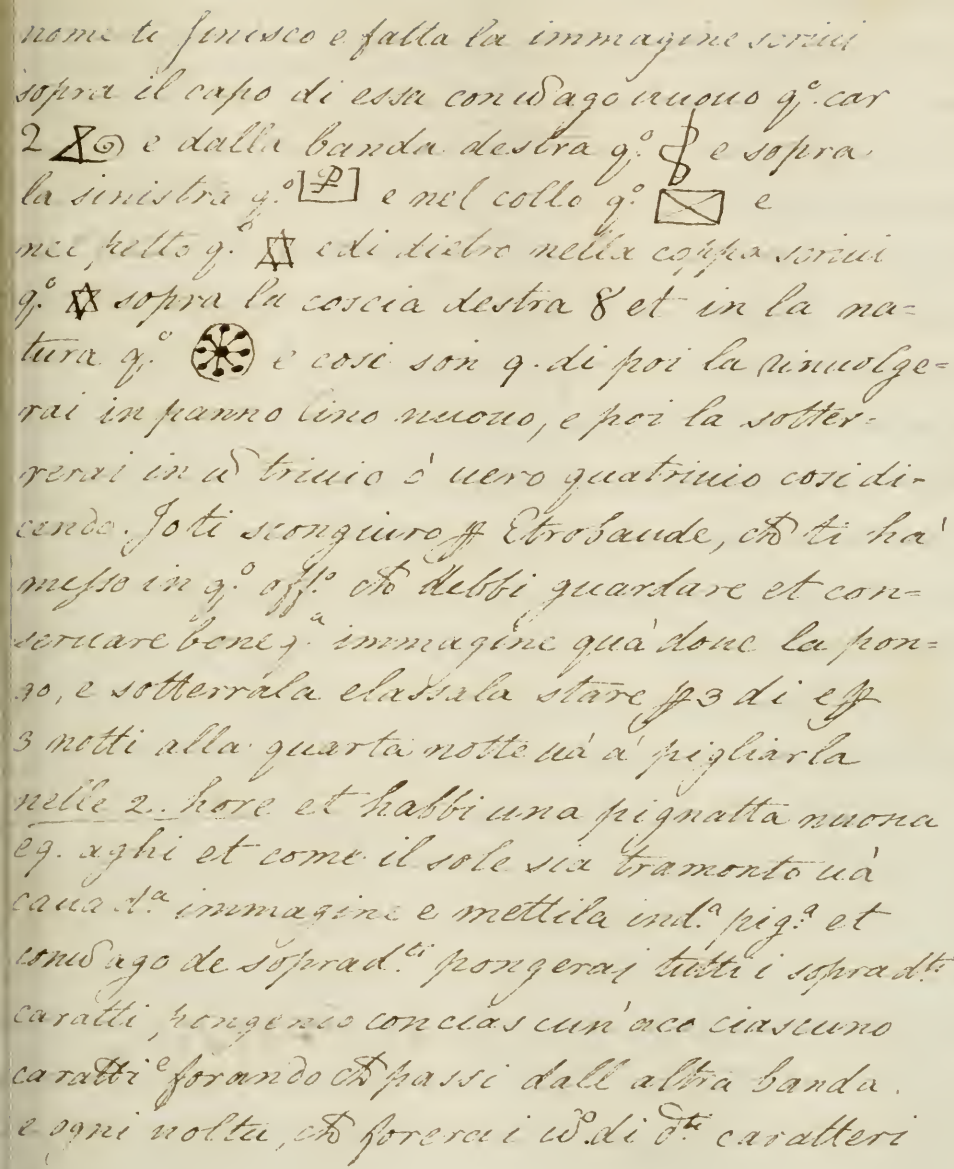 nome ti finisco e fatta la immagine scrivi
sopra il capo di essa con ũ ago nuouo q.º car
2 e dalla banda destra q.º e sopra
la sinistra q.º e nel collo q.º e
nel petto q.º e di dietro nella coppa scriui
q.º ✡ sopra la coscia destra 8 et in la na=
tura q.º e cosi son 9. di poi la rinuolge=
rai in panno lino nuouo, e poi la sotter-
rerai in ũ triuio ò uero quatriuio cosi di-
cendo. Jo ti scongiuro ꝑ Etrobaude, ch̃ ti hà
messo in q.º off.º ch̃ debbi guardare et con=
seruare bene q.ª immagine quà doue la pon=
go, e sotterrala e lassala stare ꝑ 3 di e ꝑ
3 notti alla quarta notte uà à pigliarla
nelle 2. hore et habbi una pignatta nuoua
e 9. aghi et come il sole sia tramonto uà
caua d.ª immagine e mettila in d.ª pig.ª et
con ũ ago de soprad.ti pongerai tutti i soprad.ti
caratti, pongendo con ciascun'aco ciascuno
caratt.e forando ch̃ passi dall altra banda.
e ogni uolta, ch̃ forerai ũº di d.ti caratteri